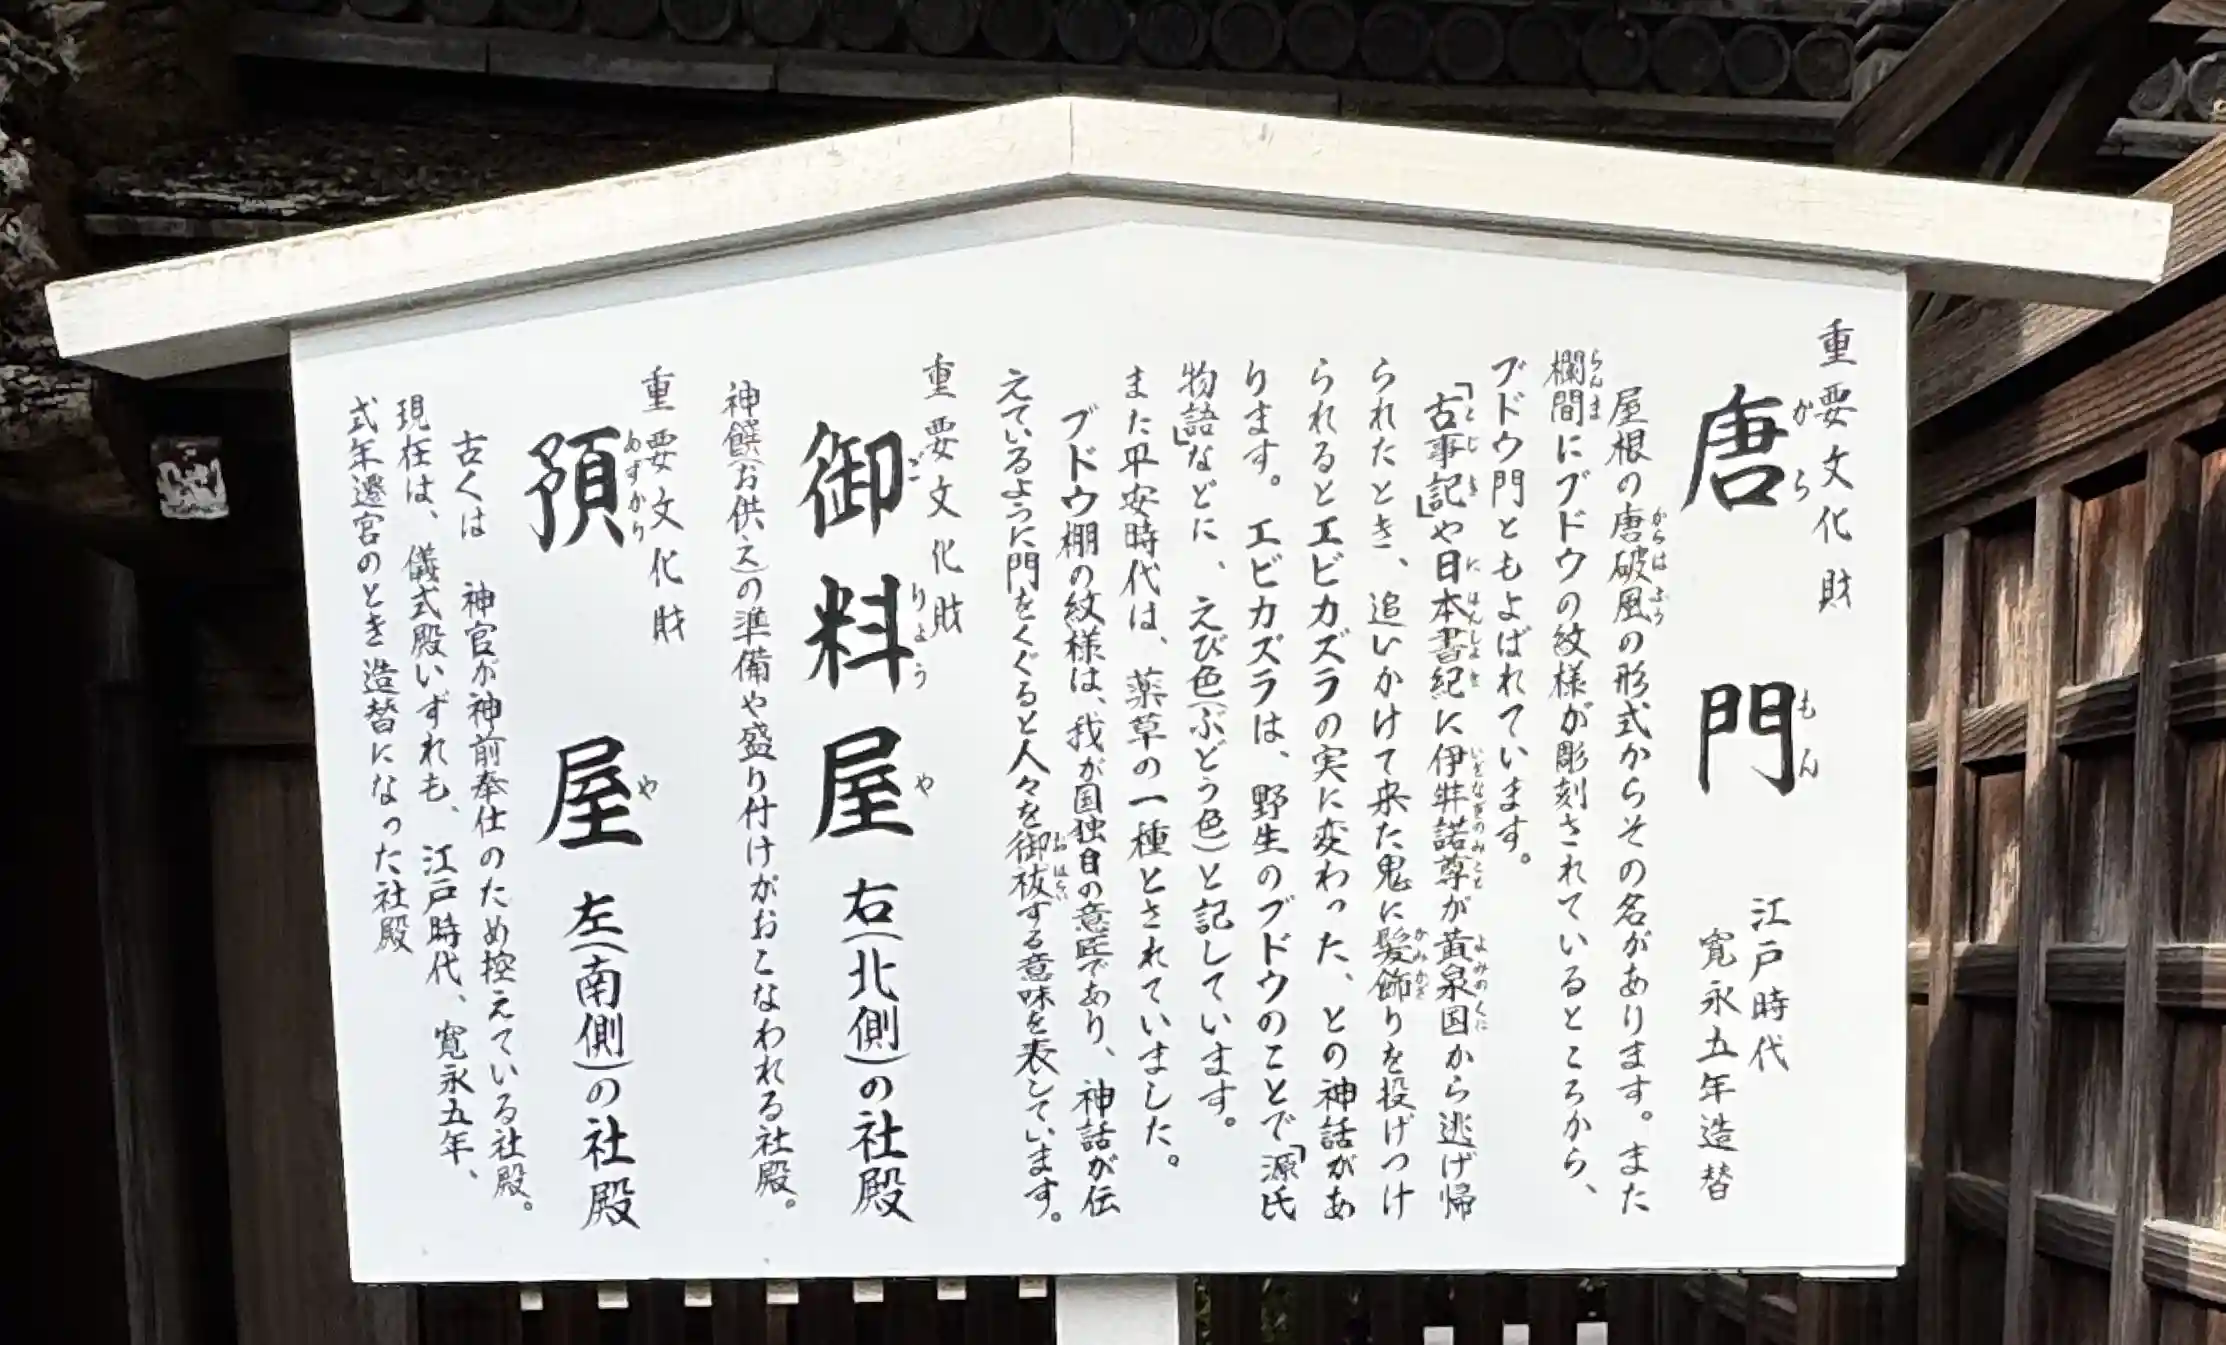 重要文化財
唐門
からもん
江戸時代
寛永五年造替
屋根の唐破風の形式からその名があります。また
からはふう
欄間にブドウの紋様が彫刻されているところから、
らんま
ブドウ門ともよばれています。
「古事記」や日本書紀に伊弉諾尊が黄泉国から逃げ帰
こじき にほんしょき いざなぎのみこと よみのくに
られたとき、追いかけて来た鬼に髪飾りを投げつけ
かみかざ
られるとエビカズラの実に変わった、との神話があ
ります。エビカズラは、野生のブドウのことで「源氏
物語」などに、えび色(ぶどう色)と記しています。
また平安時代は、薬草の一種とされていました。
ブドウ棚の紋様は、我が国独自の意匠であり、神話が伝
えているように門をくぐると人々を御祓する意味を表しています。
おはらい
重要文化財
御料屋 右(北側)の社殿
ごりょうや
神饌(お供え)の準備や盛り付けがおこなわれる社殿。
重要文化財
預屋 左(南側)の社殿
あずかりや
古くは 神官が神前奉仕のため控えている社殿。
現在は、儀式殿いずれも、江戸時代、寛永五年、
式年遷宮のとき造替になった社殿